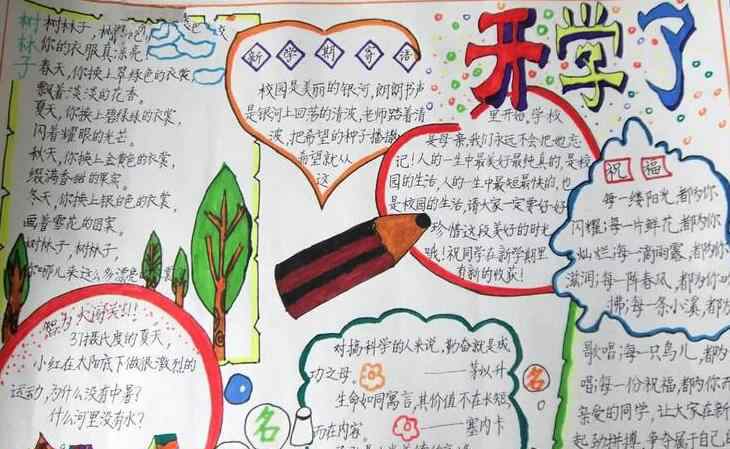 开学了
树林子
树林子,树林子,
你的衣服真漂亮!
春天,你换上翠绿色的衣裳,
飘着淡淡的花香。
夏天,你换上碧绿色的衣裳,
闪着耀眼的光芒。
秋天,你换上金黄色的衣裳,
缀满香甜的果实。
冬天,你换上银白色的衣裳,
画着雪花的图案。
树林子,树林子,
你哪儿来这么多漂亮
新学期寄语
校园是美丽的银河,朗朗书声
是银河上回荡的清波,老师踏着清
波,把希望的种子播撒
希望就从
这
里开始,学校
是母亲,我们永远不会把她忘
记!人的一生中最美好最纯真的,是校
园的生活,人的一生中最短最快的,也
是校园的生活,请大家一定要好好
珍惜这段美好的时光
哦!祝同学在新学期里
有新的收获!
祝福
每一缕阳光,都为你
闪耀;每一片鲜花,都为你
灿烂;每一滴雨露,都为你
滋润;每一阵春风,都为你
拂;每一条小溪,都为
歌唱;每一只鸟儿,都为
唱;每一份祝福,都为你
亲爱的同学,让大家在新
起劲拼搏,争夺属于自己
37摄氏度的夏天,
小红在太阳底下做很激烈的
运动,为什么没有中暑?
什么河里没有水?
对搞科学的人来说,勤奋就是成
功之母。
——茅以升
生命如同寓言,其价值不在长短,
而在内容。
——塞内卡
名
名